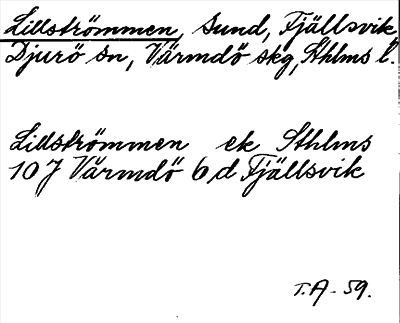 Lillströmmen, sund, Fjällsvik,
Djurö sn, Värmdö skg, Sthlms l.
Lillströmmen ek Sthlms
10J Värmdö 6 d Fjällsvik
T.A - 59.